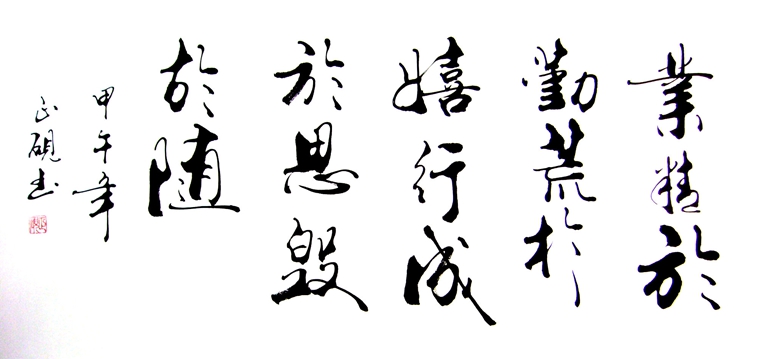 業精於
勤荒於
嬉行成
於思毀
於隨
甲午年
正硯書